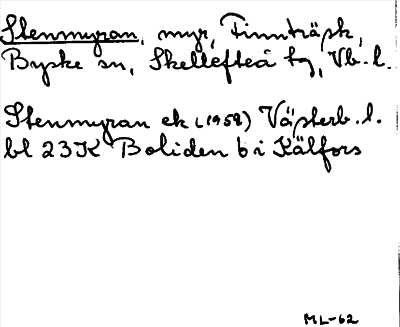 Stenmyran, myr, Finnträsk,
Byske sn, Skellefteå tg, Vb. l.
Stenmyran ek (1958) Västerb. l.
bl 23K Boliden b i Kälfors
ML-62